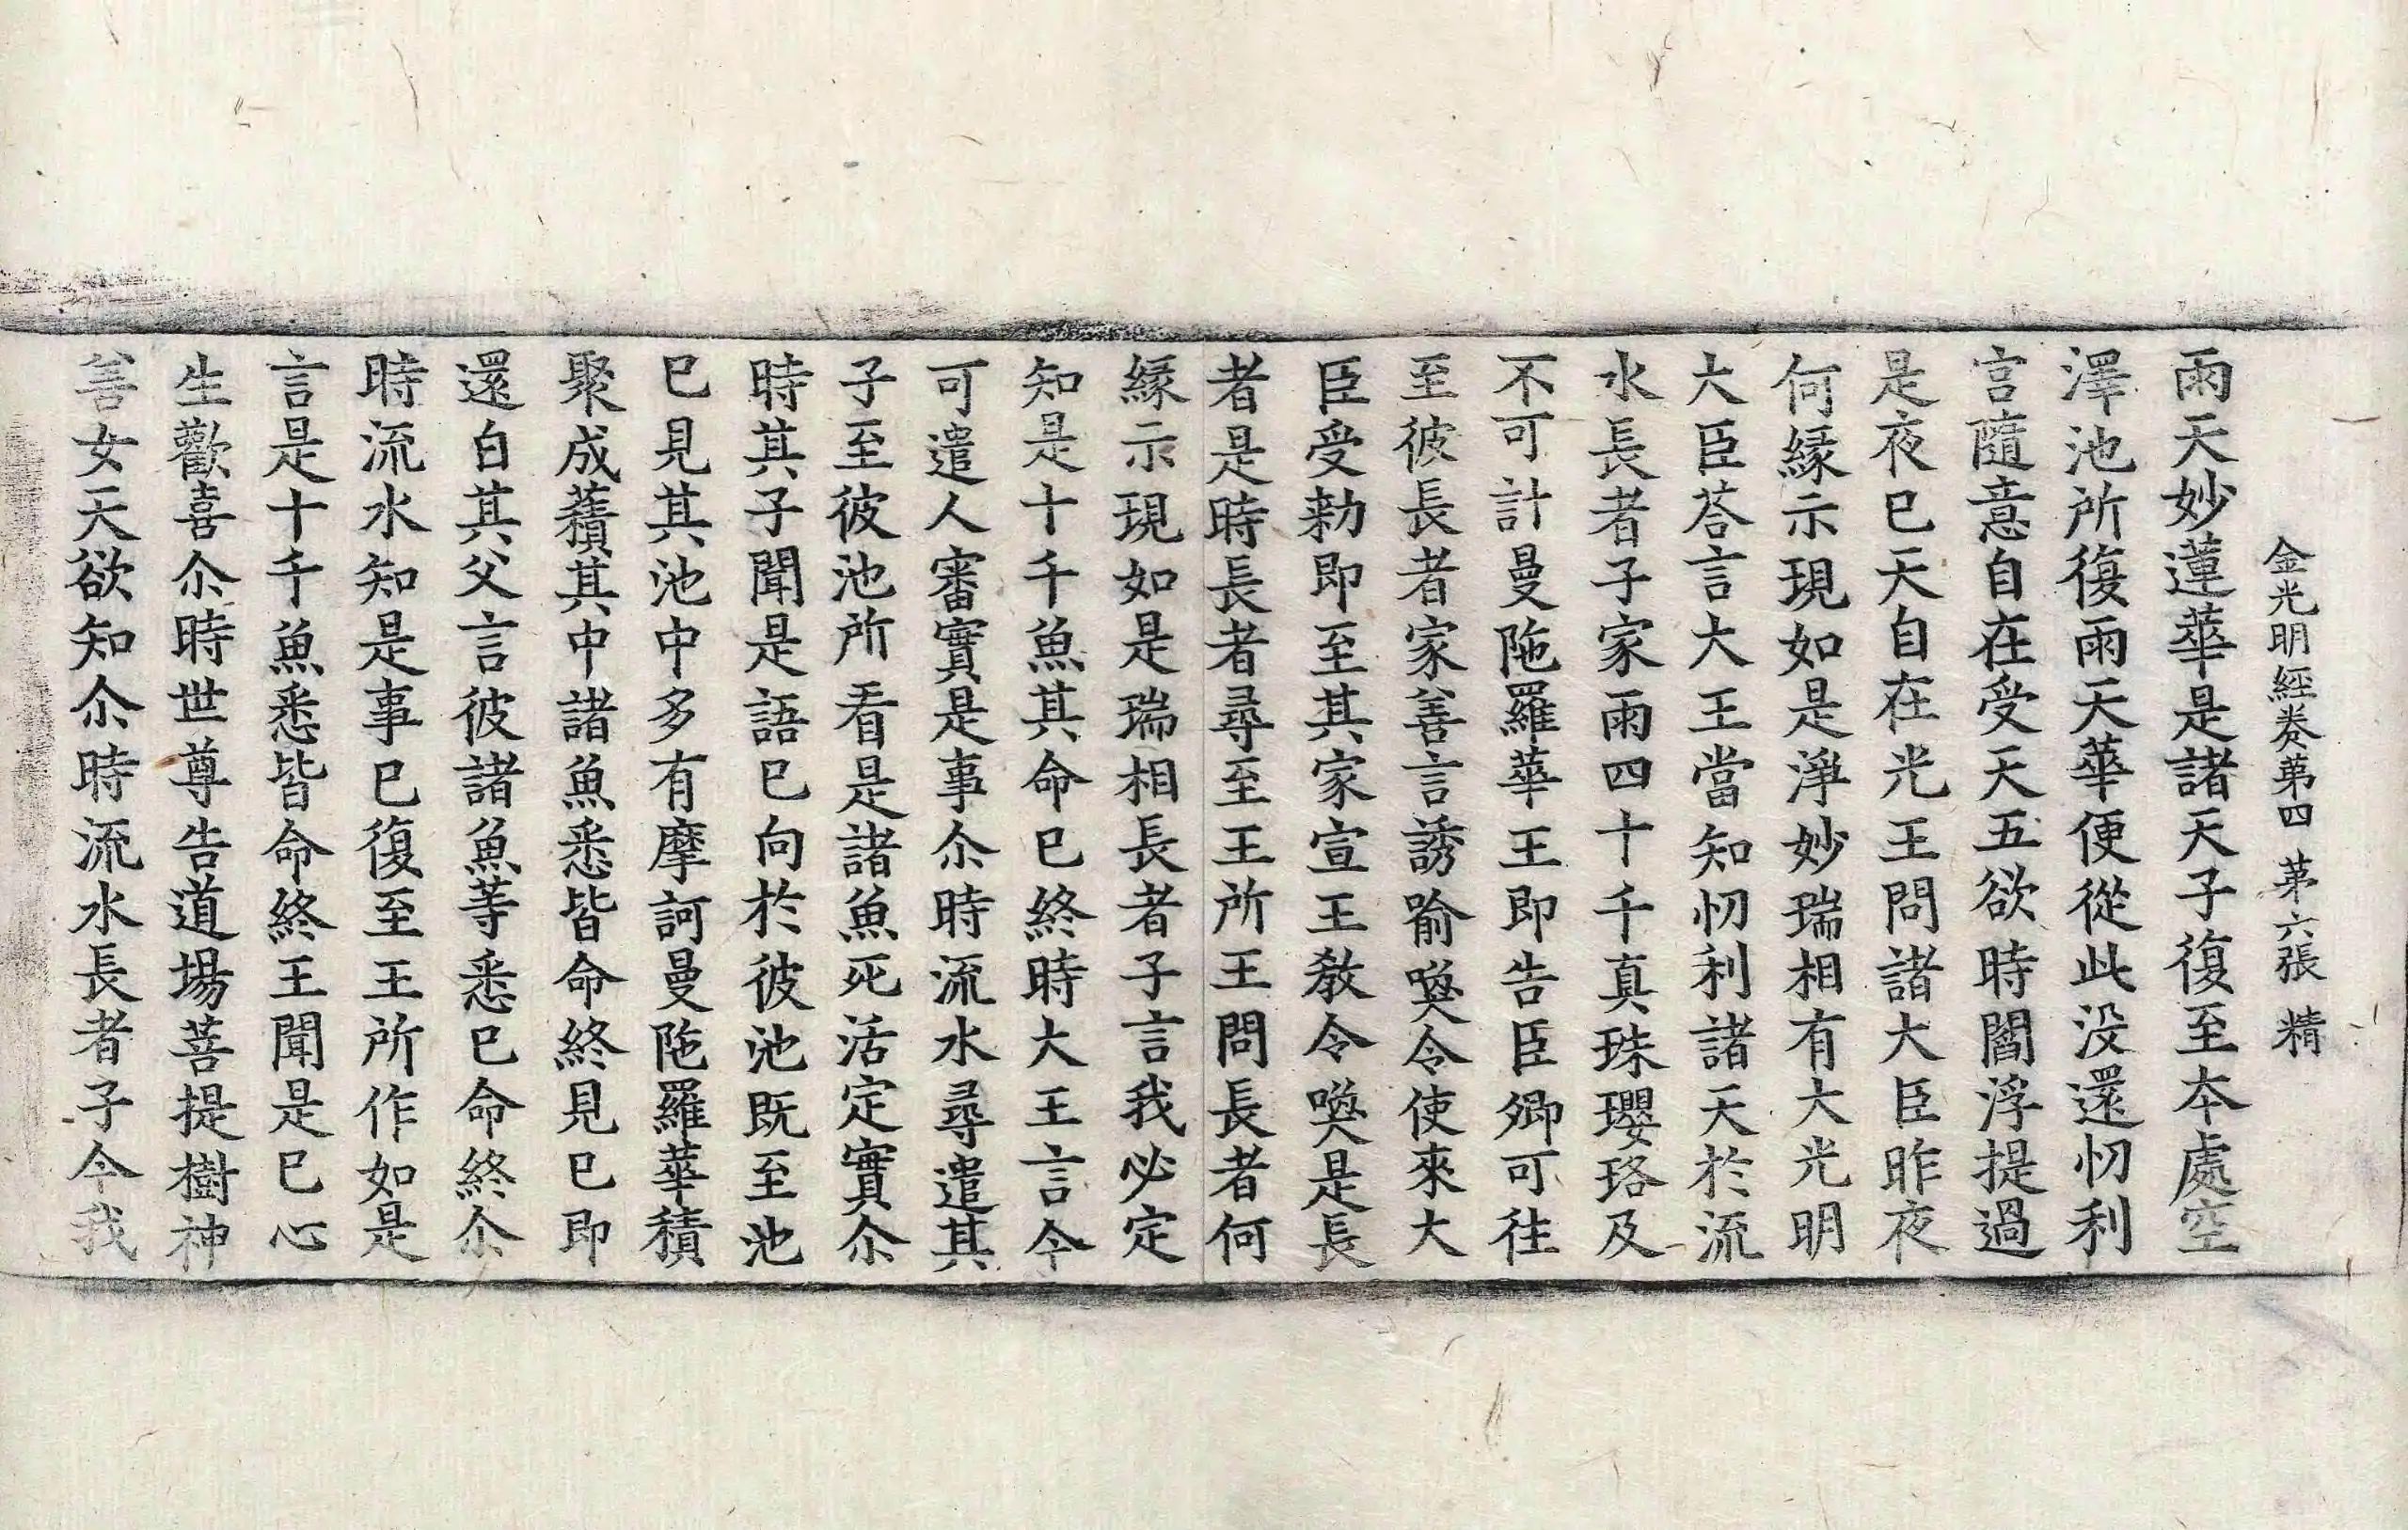 金光明經卷苐四 苐六張 精
雨天妙蓮華是諸天子復至本處空
澤池所復雨天華便從此没還忉利
宫隨意自在受天五欲時閻浮提過
是夜已天自在光王問諸大臣昨夜
何縁示現如是淨妙瑞相有大光明
大臣荅言大王當知忉利諸天於流
水長者子家雨四十千真珠瓔珞及
不可計曼陁羅華王即告臣卿可往
至彼長者家善言誘喻喚令使來大
臣受勑即至其家宣王教令喚是長
者是時長者尋至王所王問長者何
縁示現如是瑞相長者子言我必定
知是十千魚其命已終時大王言今
可遣人審實是事尒時流水尋遣其
子至彼池所看是諸魚死活定實尒
時其子聞是語已向於彼池既至池
已見其池中多有摩訶曼陁羅華積
聚成𧂐其中諸魚悉皆命終見已即
還白其父言彼諸魚等悉已命終尒
時流水知是事已復至王所作如是
言是十千魚悉皆命終王聞是已心
生歡喜尒時世尊告道場菩提樹神
善女天欲知尒時流水長者子今我